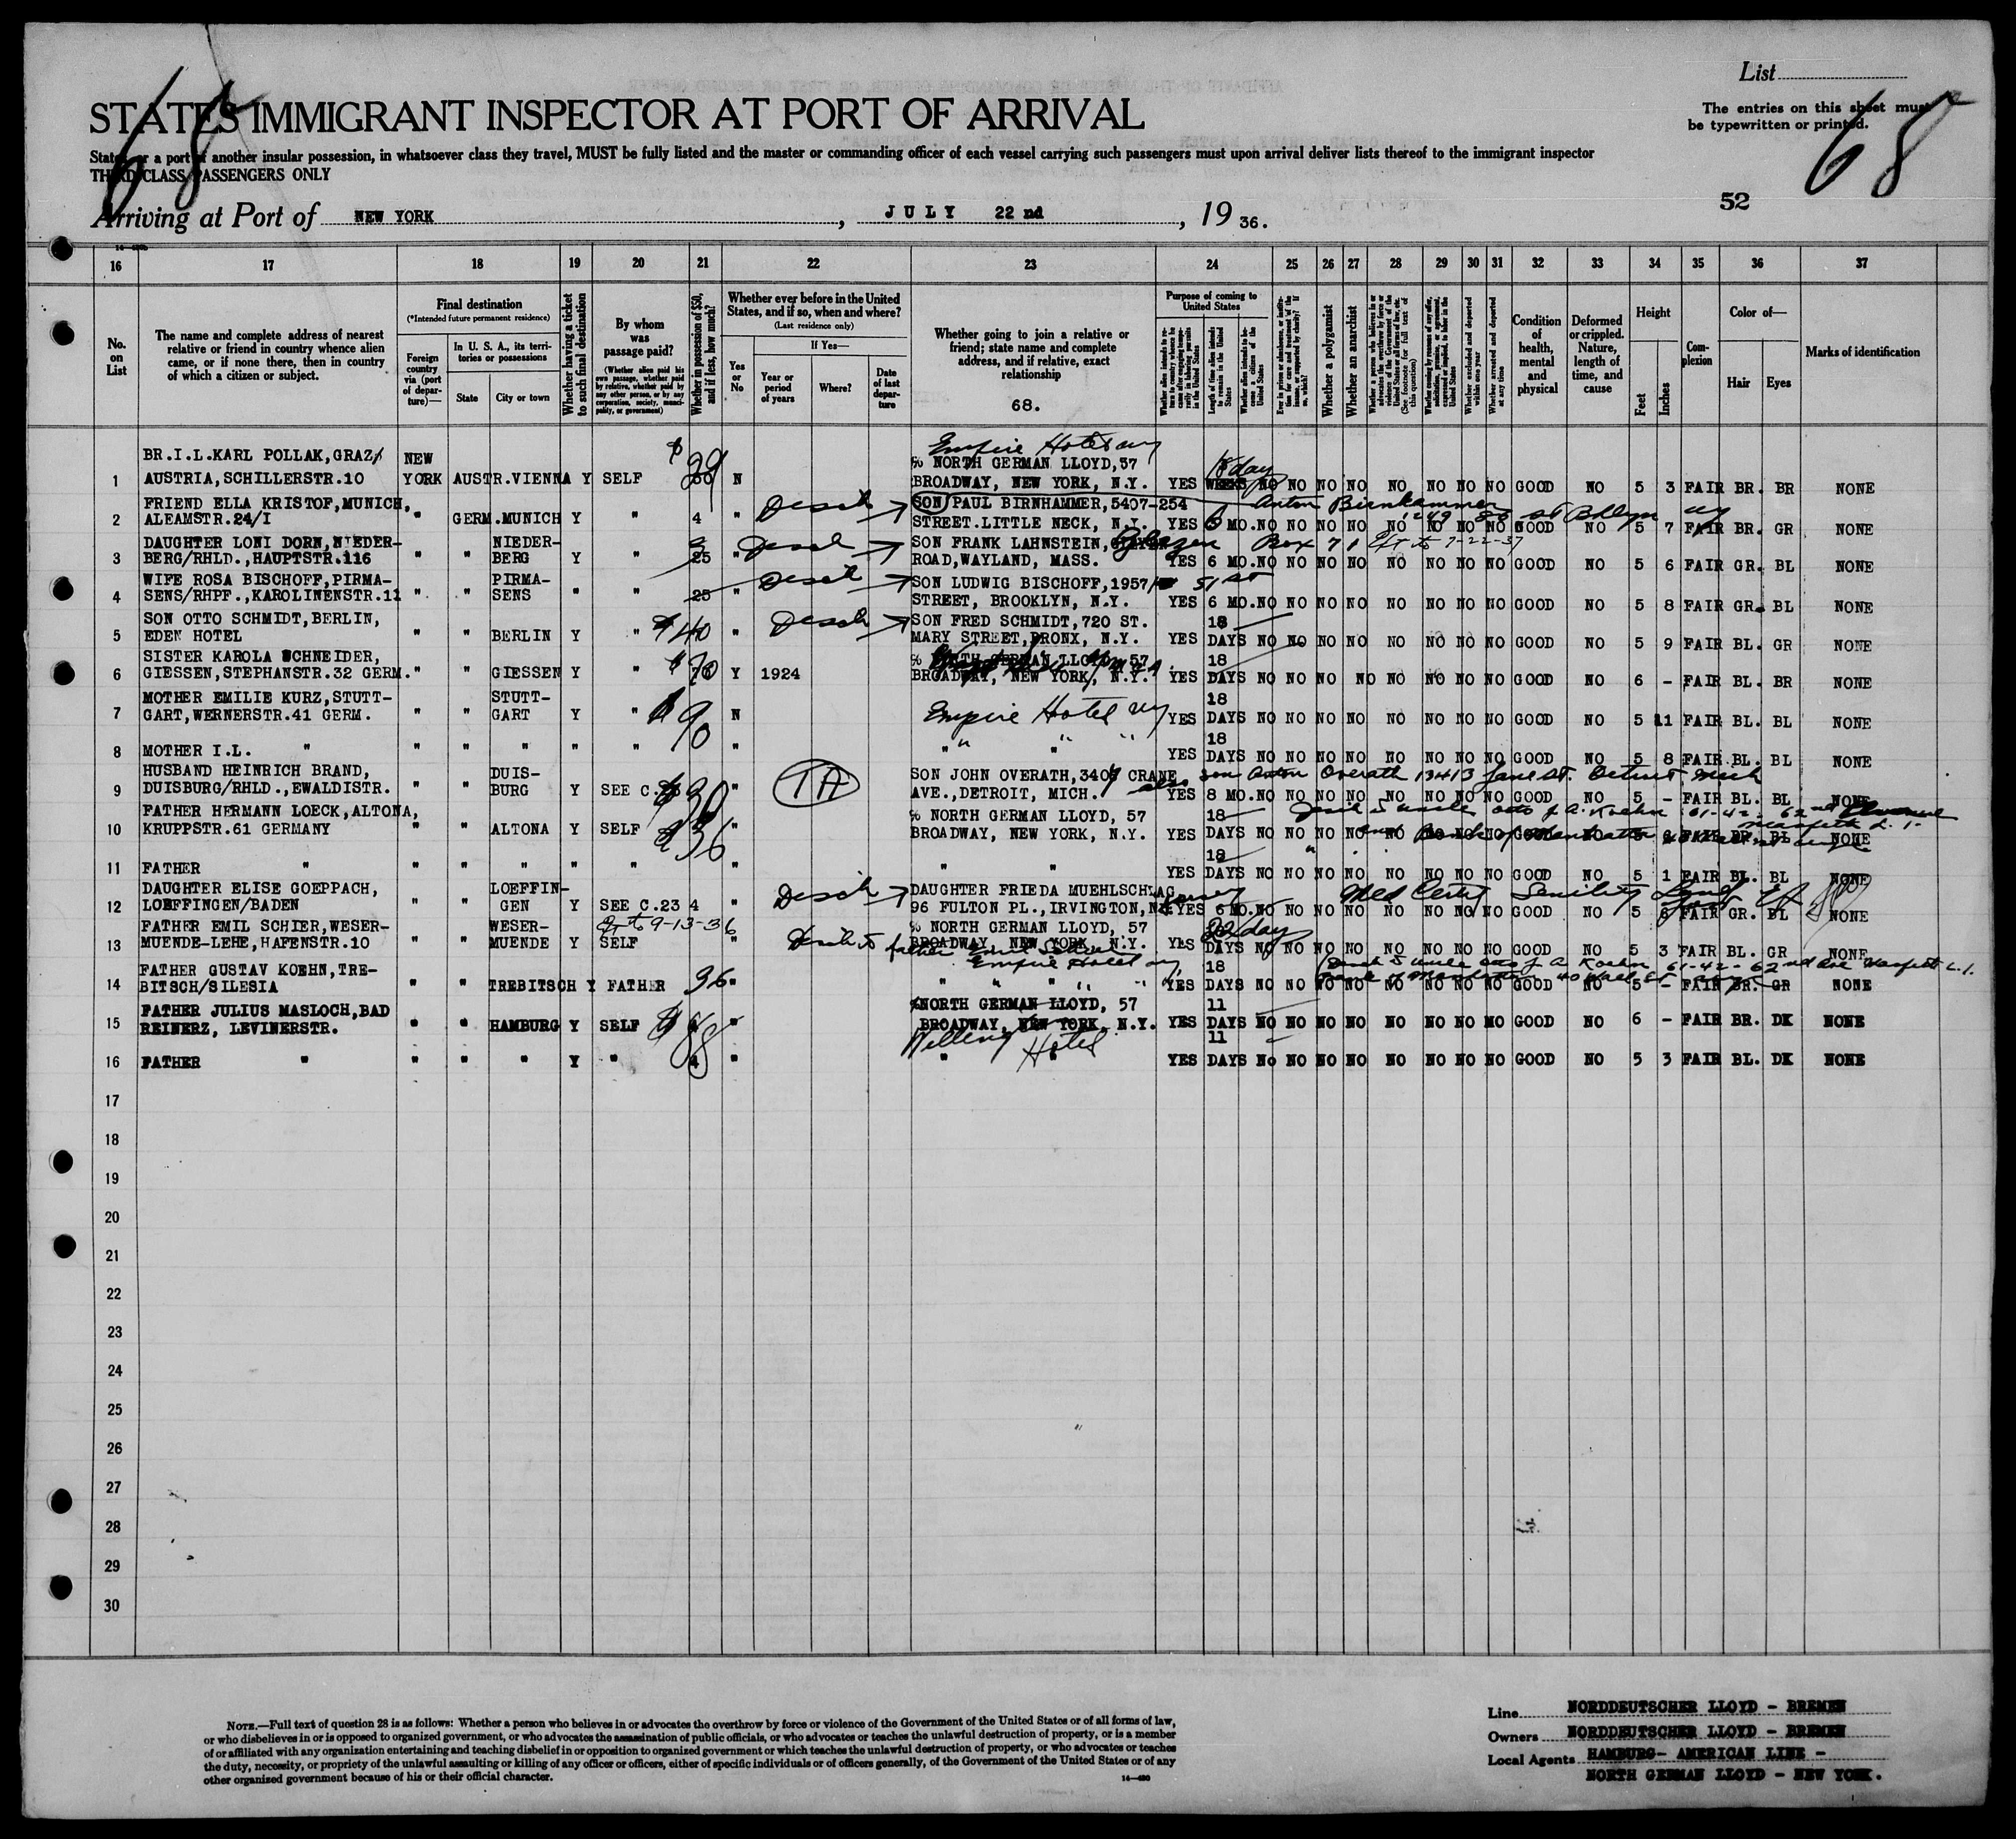 List
The entries on this sheet must
be typewritten or printed.
68
68
STATES IMMIGRANT INSPECTOR AT PORT OF ARRIVAL
States, or a port of another insular possession, in whatsoever class they travel, MUST be fully listed and the master or commanding officer of each vessel carrying such passengers must upon arrival deliver lists thereof to the immigrant inspector
THIRD CLASS PASSENGERS ONLY
52
Arriving at Port of NEW YORK, JULY 22 nd, 19 36.
16 17 18 19 20 21 22 23 24 25 26 27 28 29 30 31 32 33 34 35 36 37
No. on List
The name and complete address of nearest
relative or friend in country whence alien
came, or if none there, then in country
of which a citizen or subject.
Final destination
(*Intended future permanent residence)
Foreign country via (port of departure)—
In U. S. A., its territories or possessions
State
City or town
Whether having a ticket to such final destination
By whom was passage paid?
(Whether alien paid his own passage, whether paid by relative, whether paid by any other person, or by any corporation, society, municipality, or government)
Whether in possession of $50, and if less, how much?
Whether ever before in the United States, and if so, when and where?
(Last residence only)
Yes or No
If Yes—
Year or period of years
Where?
Date of last departure
Whether going to join a relative or
friend; state name and complete
address, and if relative, exact
relationship
68.
Purpose of coming to United States
Length of time alien intends to remain in the United States
Whether a polygamist
Whether an anarchist
Whether arrested and deported within one year
Whether arrested and deported at any time
Condition of health, mental and physical
Deformed or crippled. Nature, length of time, and cause
Height
Feet
Inches
Complexion
Color of—
Hair
Eyes
Marks of identification
Empire Hotel NY
BR.I.L.KARL POLLAK,GRAZ/ NEW $ 29 % NORTH GERMAN LLOYD,57 18 day
1 AUSTRIA,SCHILLERSTR.10 YORK AUSTR.VIENNA Y SELF N BROADWAY, NEW YORK, N.Y. YES WEEKS NO NO NO NO NO NO NO NO GOOD NO 5 3 FAIR BR. BR NONE
FRIEND ELLA KRISTOF,MUNICH, SON PAUL BIRNHAMMER,5407-254 Anton Birnhammer
2 ALEAMSTR.24/I " GERM.MUNICH Y " 4 " STREET.LITTLE NECK, N.Y. YES 6 MO.NO NO NO NO NO NO NO NO GOOD NO 5 7 FAIR BR. GR NONE
DAUGHTER LONI DORN,NIEDER- NIEDER- SON FRANK LAHNSTEIN, Box 71 Ext to 7-22-37
3 BERG/RHLD.,HAUPTSTR.116 " " BERG Y " 25 " ROAD,WAYLAND, MASS. YES 6 MO.NO NO NO NO NO NO NO NO GOOD NO 5 6 FAIR GR. BL NONE
WIFE ROSA BISCHOFF,PIRMA- PIRMA- SON LUDWIG BISCHOFF,1957 51 st
4 SENS/RHPF.,KAROLINENSTR.11 " " SENS " " 25 " STREET, BROOKLYN, N.Y. YES 6 MO.NO NO NO NO NO NO NO NO GOOD NO 5 8 FAIR GR. BL NONE
SON OTTO SCHMIDT,BERLIN, SON FRED SCHMIDT,720 ST. 18
5 EDEN HOTEL " " BERLIN Y " $ 40 " MARY STREET,BRONX, N.Y. YES DAYS NO NO NO NO NO NO NO NO GOOD NO 5 9 FAIR BL. GR NONE
SISTER KAROLA SCHNEIDER, % NORTH GERMAN LLOYD, 57 18
6 GIESSEN,STEPHANSTR.32 GERM. " " GIESSEN Y " $ 70 Y 1924 BROADWAY, NEW YORK, N.Y. YES DAYS NO NO NO NO NO NO NO NO GOOD NO 6 - FAIR BL. BR NONE
MOTHER EMILIE KURZ,STUTT- STUTT- 18
7 GART,WERNERSTR.41 GERM. " " GART Y " $ 90 N Empire Hotel NY YES DAYS NO NO NO NO NO NO NO NO GOOD NO 5 11 FAIR BL. BL NONE
18
8 MOTHER I.L. " " " " " " " " " " YES DAYS NO NO NO NO NO NO NO NO GOOD NO 5 8 FAIR BL. BL NONE
HUSBAND HEINRICH BRAND, DUIS- TA SON JOHN OVERATH,3407 CRANE son Anton Overath 13413 Jane St. Detroit Mich
9 DUISBURG/RHLD.,EWALDISTR. " " BURG Y SEE C. " AVE.,DETROIT, MICH. also YES 8 MO.NO NO NO NO NO NO NO NO GOOD NO 5 - FAIR BL. BL NONE
FATHER HERMANN LOECK,ALTONA, % NORTH GERMAN LLOYD, 57 18 A. Koehn 61-42-62nd Avenue
10 KRUPPSTR.61 GERMANY " " ALTONA Y SELF $ 36 " BROADWAY, NEW YORK, N.Y. YES DAYS NO NO NO NO NO NO NO NO GOOD NO FAIR BR. BL NONE
18
11 FATHER " " " " " " " " " YES DAYS NO NO NO NO NO NO NO NO GOOD NO 5 1 FAIR BL. BL NONE
DAUGHTER ELISE GOEPPACH, LOEFFIN- DAUGHTER FRIEDA MUEHLSCHLAG Med Cert Senility
12 LOEFFINGEN/BADEN " " GEN Y SEE C.23 4 " 96 FULTON PL.,IRVINGTON,NJ. YES 6 MO.NO NO NO NO NO NO NO NO GOOD NO 5 6 FAIR GR. BL NONE
FATHER EMIL SCHIER,WESER- WESER- Ext to 9-13-36 % NORTH GERMAN LLOYD, 57 22 day
13 MUENDE-LEHE,HAFENSTR.10 " " MUENDE Y SELF " BROADWAY, NEW YORK, N.Y. YES DAYS NO NO NO NO NO NO NO NO GOOD NO 5 3 FAIR BL. GR NONE
Empire Hotel NY
FATHER GUSTAV KOEHN,TRE- 18 A Koehn 61-42-62nd Ave Maspeth L.I.
14 BITSCH/SILESIA " " TREBITSCH Y FATHER 36 " " " YES DAYS NO NO NO NO NO NO NO NO GOOD NO 5 - FAIR BR. GR NONE
FATHER JULIUS MASLOCH,BAD %NORTH GERMAN LLOYD, 57 11
15 REINERZ, LEVINERSTR. " " HAMBURG Y SELF $ 88 " BROADWAY, NEW YORK, N.Y. YES DAYS NO NO NO NO NO NO NO NO GOOD NO 6 - FAIR BR. DK NONE
Hotel 11
16 FATHER " " " " Y " 4 " " " YES DAYS NO NO NO NO NO NO NO NO GOOD NO 5 3 FAIR BL. DK NONE
17
18
19
20
21
22
23
24
25
26
27
28
29
30
NOTE.—Full text of question 28 is as follows: Whether a person who believes in or advocates the overthrow by force or violence of the Government of the United States or of all forms of law,
or who disbelieves in or is opposed to organized government, or who advocates the assassination of public officials, or who advocates or teaches the unlawful destruction of property, or is a member
of or affiliated with any organization entertaining and teaching disbelief in or opposition to organized government or which teaches the unlawful destruction of property, or who advocates or teaches
the duty, necessity, or propriety of the unlawful assaulting or killing of any officer or officers, either of specific individuals or of officers generally, of the Government of the United States or of any
other organized government because of his or their official character.
14—480
Line NORDDEUTSCHER LLOYD - BREMEN
Owners NORDDEUTSCHER LLOYD - BREMEN
Local Agents HAMBURG- AMERICAN LINE -
NORTH GERMAN LLOYD - NEW YORK.